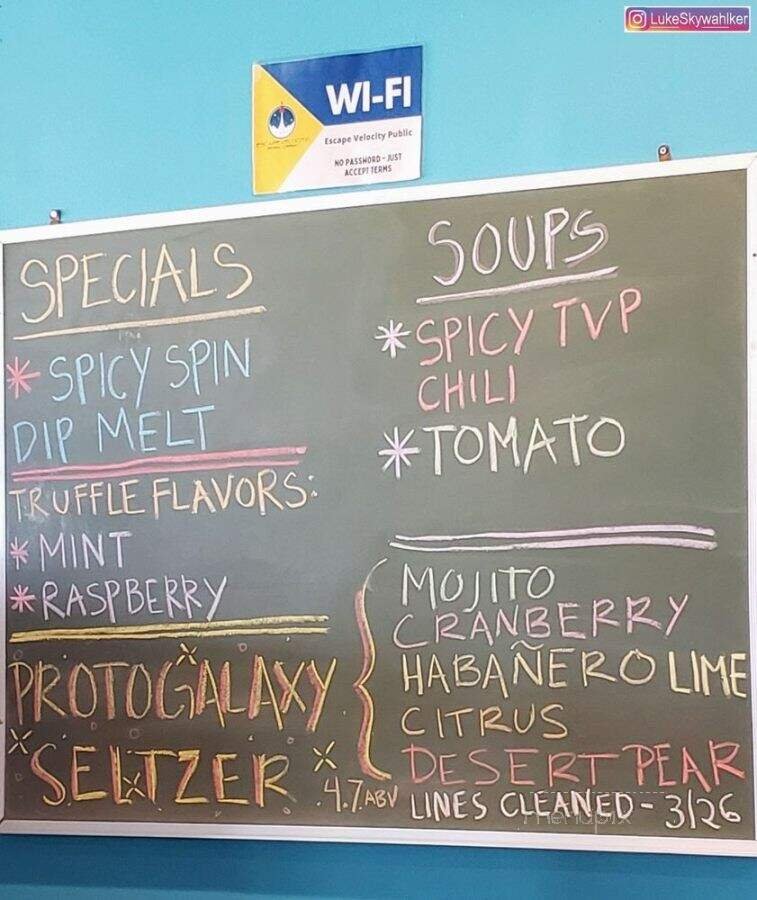 LukeSkywahlker
WI-FI
Escape Velocity Public
NO PASSWORD - JUST
ACCEPT TERMS
SPECIALS
* SPICY SPIN
DIP MELT
TRUFFLE FLAVORS:
* MINT
* RASPBERRY
PROTOGALAXY
SELTZER
4.7 ABV
SOUPS
* SPICY TVP
CHILI
* TOMATO
MOJITO
CRANBERRY
HABAÑERO LIME
CITRUS
DESERT PEAR
LINES CLEANED - 3/26